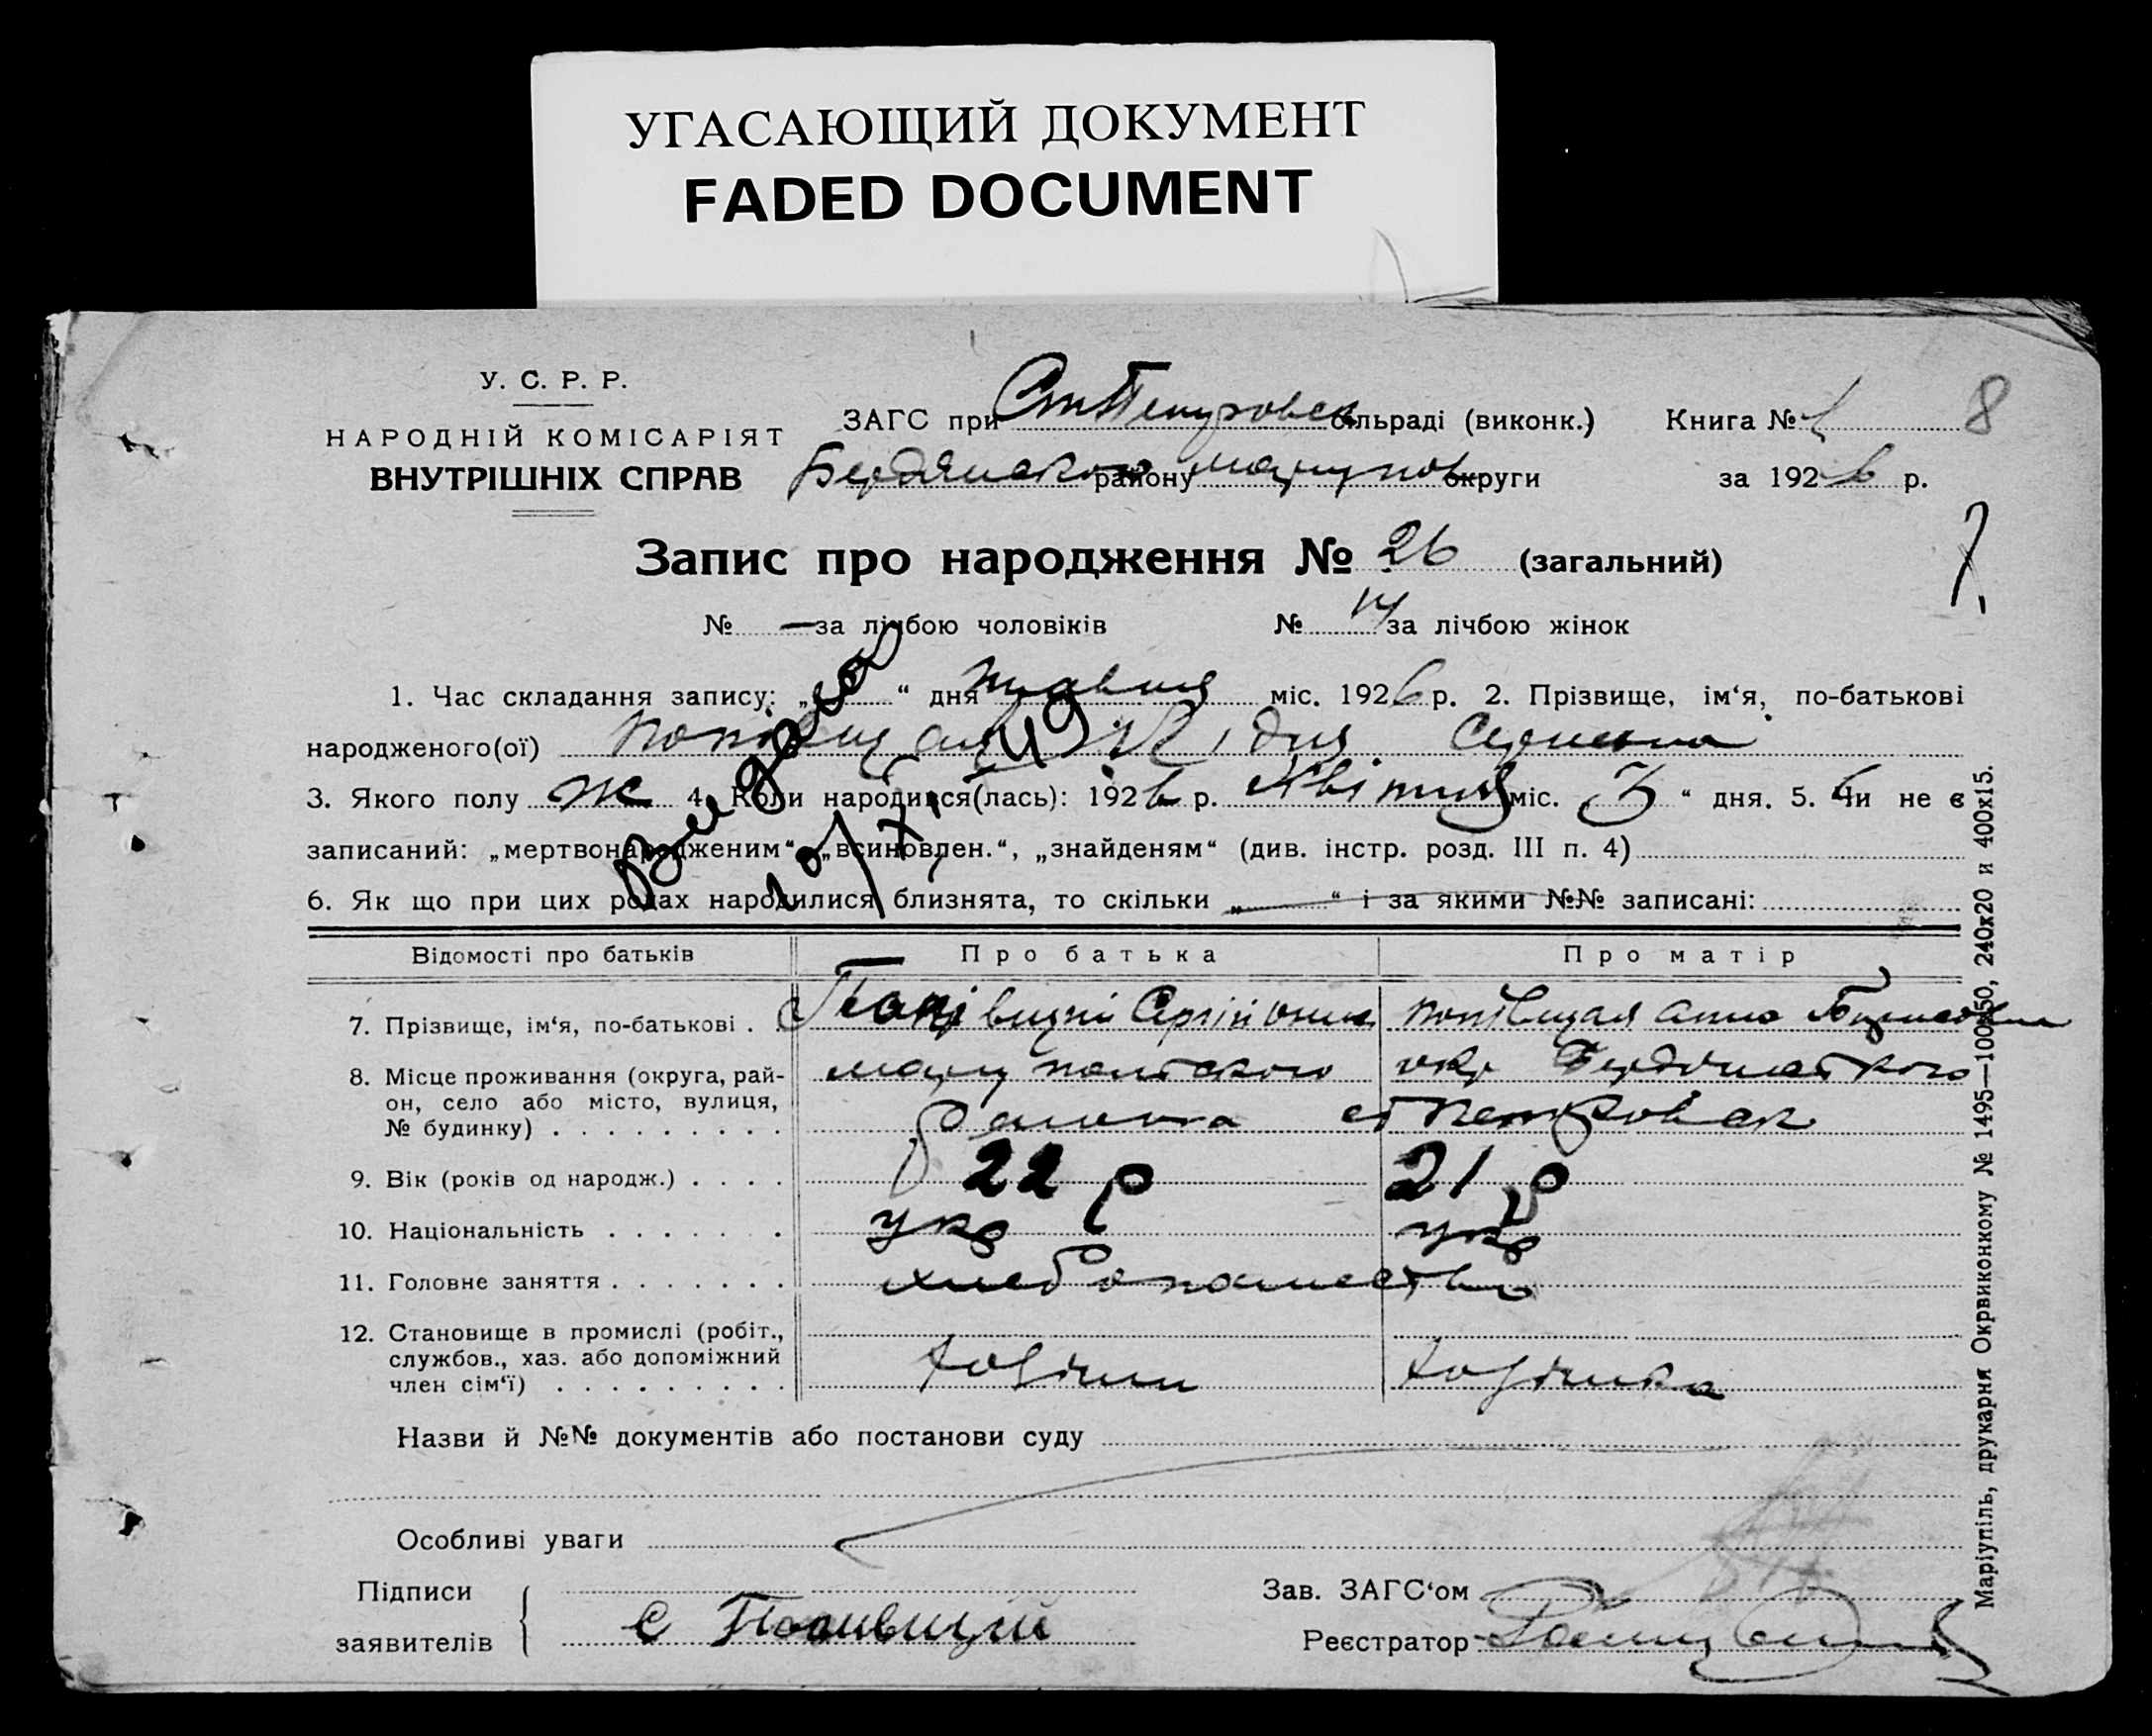 УГАСАЮЩИЙ ДОКУМЕНТ
FADED DOCUMENT
У. С. Р. Р.
НАРОДНІЙ КОМІСАРІЯТ
ВНУТРІШНІХ СПРАВ
ЗАГС при СтПетровск сільраді (виконк.) Книга № 1 8
Бердянского району Маріупов округи за 1926 р.
Запис про народження № 26 (загальний)
№ — за лічбою чоловіків № 14 за лічбою жінок
1. Час складання запису: „ “ дня травня міс. 1926 р. 2. Прізвище, ім‘я, по-батькові
народженого(ої) Лідия
3. Якого полу Ж 4. Коли народився(лась): 1926 р. Квітня міс. 3 “ дня. 5. Чи не є
записаний: „мертвонародженим“, „всиновлен.“, „знайденям“ (див. інстр. розд. III п. 4)
6. Як що при цих родах народилися близнята, то скільки „ “ і за якими №№ записані:
Відомості про батьків Про батька Про матір
7. Прізвище, ім‘я, по-батькові . Сергій Анна
8. Місце проживання (округа, рай- Маріупольского окр Бердянського
он, село або місто, вулиця, района ст Петровск
№ будинку) . . . . . . . . .
9. Вік (років од народж.) . . . . 22 р 21 р
10. Національність . . . . . . . укр укр
11. Головне заняття . . . . . . . хлебопашество
12. Становище в промислі (робіт.,
службов., хаз. або допоміжний
член сім‘ї) . . . . . . . . .
Назви й №№ документів або постанови суду
Особливі уваги
Підписи Зав. ЗАГС‘ом
заявителів С Реєстратор
Маріупіль, друкарня Окрвиконкому № 1495—100х50, 240х20 и 400х15.